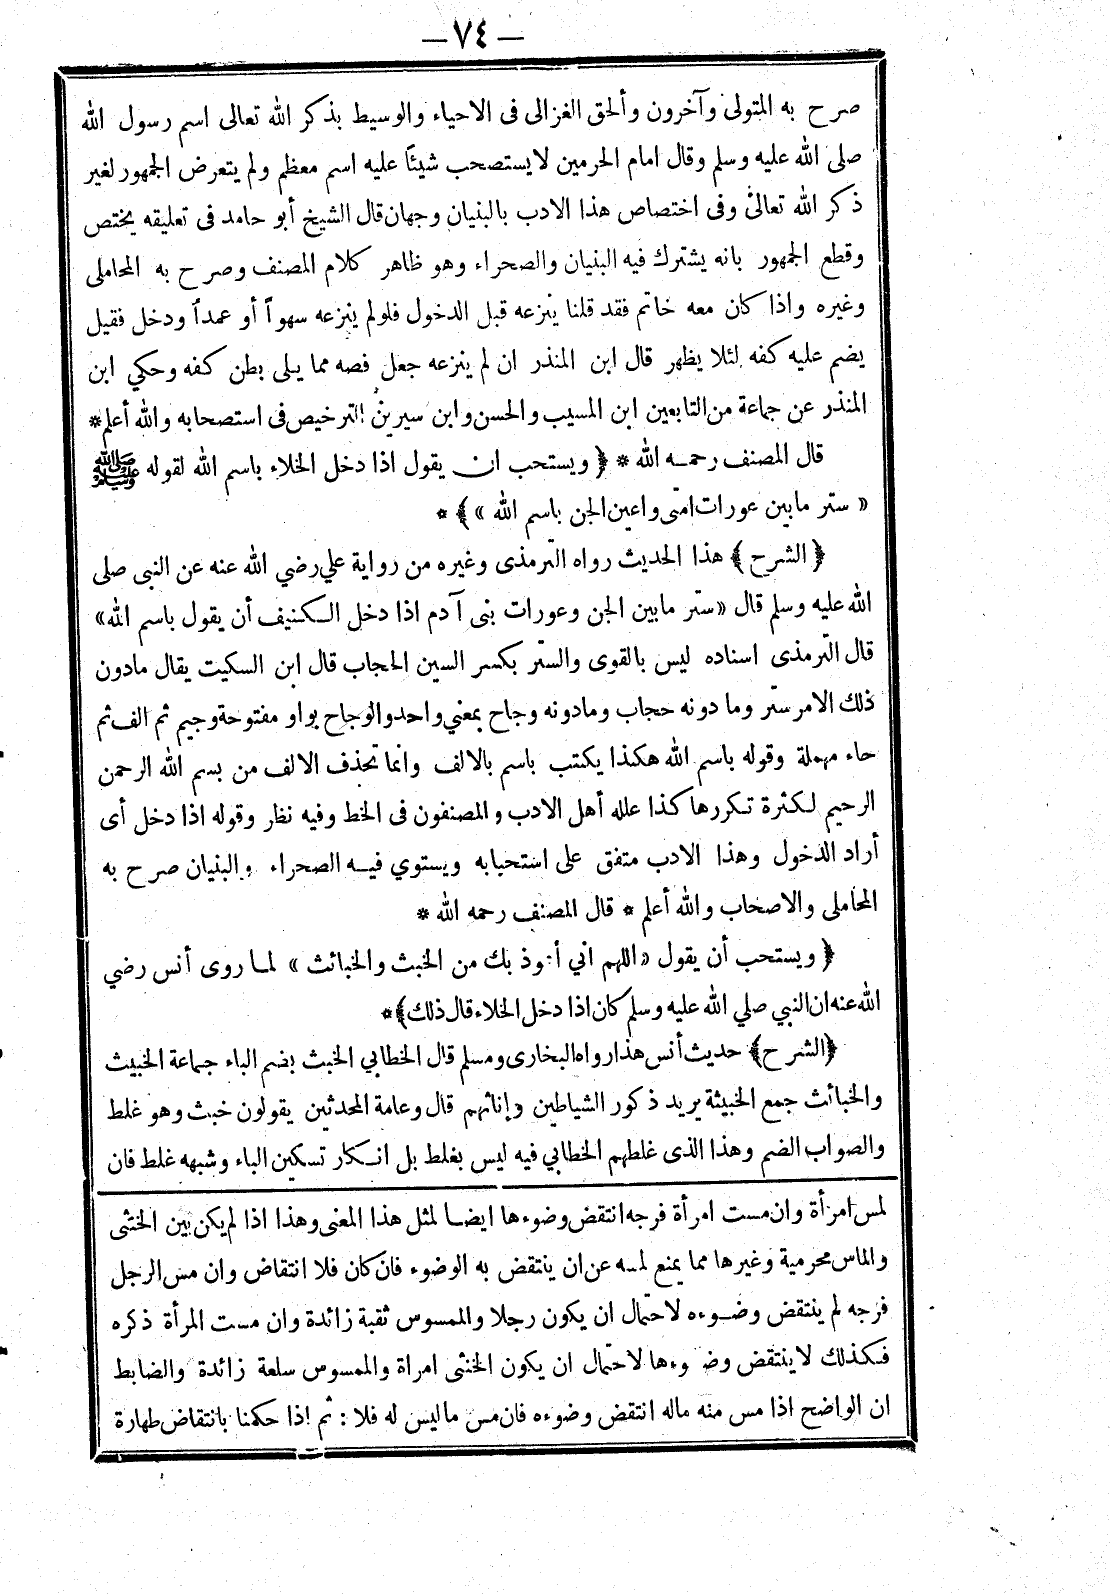 — ٧٤ —
صرح به المتولى وآخرون وألحق الغزالى فى الاحياء والوسيط بذكر الله تعالى اسم رسول الله
صلى الله عليه وسلم وقال امام الحرمين لا يستصحب شيئاً عليه اسم معظم ولم يتعرض الجمهور لغير
ذكر الله تعالى وفى اختصاص هذا الادب بالبنيان وجهان قال الشيخ أبو حامد فى تعليقه يختص
وقطع الجمهور بانه يشترك فيه البنيان والصحراء وهو ظاهر كلام المصنف وصرح به المحاملى
وغيره واذا كان معه خاتم فقد قلنا ينزعه قبل الدخول فلو لم ينزعه سهواً أو عمداً ودخل فقيل
يضم عليه كفه لئلا يظهر قال ابن المنذر ان لم ينزعه جعل فصه مما يلى بطن كفه وحكي ابن
المنذر عن جماعة من التابعين ابن المسيب والحسن وابن سيرين الترخيص فى استصحابه والله أعلم *
قال المصنف رحمه الله * ﴿ ويستحب ان يقول اذا دخل الخلاء باسم الله لقوله ﷺ
« ستر ما بين عورات امتى واعين الجن باسم الله » ﴾ *
﴿ الشرح ﴾ هذا الحديث رواه الترمذى وغيره من رواية علي رضي الله عنه عن النبى صلى
الله عليه وسلم قال «ستر ما بين الجن وعورات بنى آدم اذا دخل الكنيف أن يقول باسم الله»
قال الترمذى اسناده ليس بالقوى والستر بكسر السين الحجاب قال ابن السكيت يقال مادون
ذلك الامر ستر وما دونه حجاب ومادونه وجاح بمعني واحد والوجاح بواو مفتوحة وجيم ثم الف ثم
حاء مهملة وقوله باسم الله هكذا يكتب باسم بالالف وانما تحذف الالف من بسم الله الرحمن
الرحيم لكثرة تكررها كذا علله أهل الادب والمصنفون فى الخط وفيه نظر وقوله اذا دخل أى
أراد الدخول وهذا الادب متفق على استحبابه ويستوي فيه الصحراء والبنيان صرح به
المحاملى والاصحاب والله أعلم * قال المصنف رحمه الله *
﴿ ويستحب أن يقول «اللهم اني أعوذ بك من الخبث والخبائث » لما روى أنس رضي
الله عنه ان النبي صلي الله عليه وسلم كان اذا دخل الخلاء قال ذلك ﴾ *
﴿ الشرح ﴾ حديث أنس هذا رواه البخارى ومسلم قال الخطابي الخبث بضم الباء جماعة الخبيث
والخبائث جمع الخبيثة يريد ذكور الشياطين وإناثهم قال وعامة المحدثين يقولون خبث وهو غلط
والصواب الضم وهذا الذى غلطهم الخطابي فيه ليس بغلط بل انكار تسكين الباء وشبهه غلط فان
لمس امرأة وان مست امرأة فرجه انتقض وضوءها ايضا لمثل هذا المعنى وهذا اذا لم يكن بين الخنثى
والماس محرمية وغيرها مما يمنع لمسه عن ان ينتقض به الوضوء فان كان فلا انتقاض وان مس الرجل
فرجه لم ينتقض وضوءه لاحتمال ان يكون رجلا والممسوس ثقبة زائدة وان مست المرأة ذكره
فكذلك لا ينتقض وضوءها لاحتمال ان يكون الخنثى امراة والممسوس سلعة زائدة والضابط
ان الواضح اذا مس منه ماله انتقض وضوءه فان مس ما ليس له فلا : ثم اذا حكمنا بانتقاض طهارة